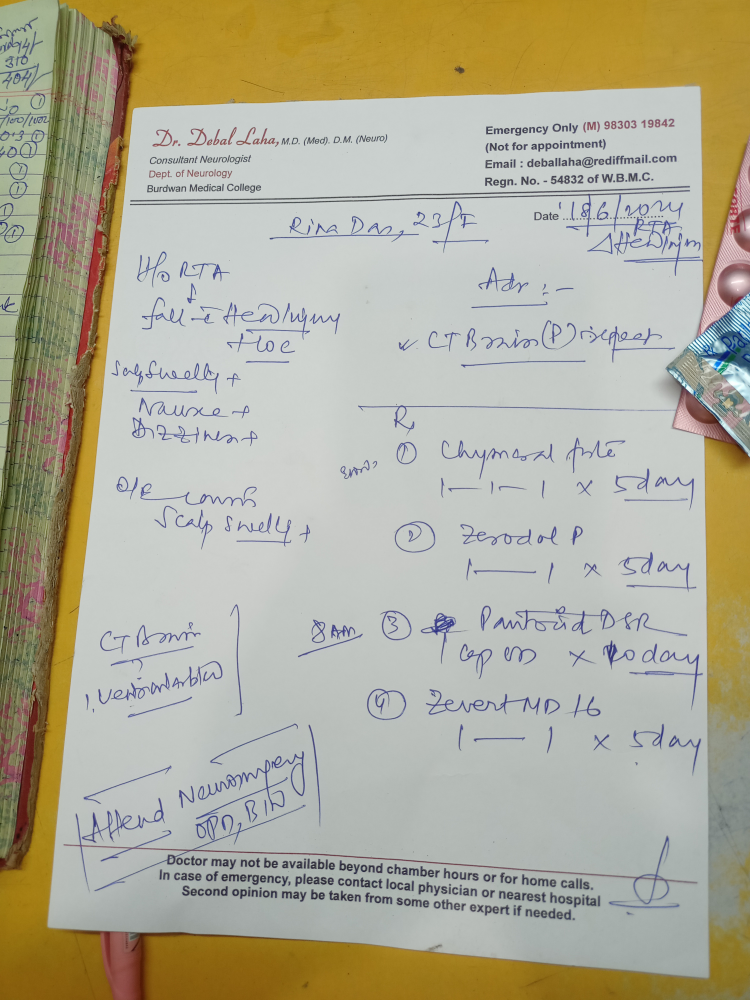 Dr. Debal Laha, M.D. (Med). D.M. (Neuro)
Consultant Neurologist
Dept. of Neurology
Burdwan Medical College
Emergency Only (M) 98303 19842
(Not for appointment)
Email : deballaha@rediffmail.com
Regn. No. - 54832 of W.B.M.C.
Rina Das, 23/F
Date 18/6/2024
RTA
Head Injury
H/o RTA
↓
fall c̄ Head Injury
+ LOC
Scalp Swelly +
Nausea +
Dizziness +
O/E
Scalp Swelly +
CT Brain
Attend Neurosurgery
OPD,
Adv :-
CT Brain (P) repeat
Rx
① Chymoral forte
1—1—1 x 5 day
② Zerodol P
1—1 x 5 day
8 AM ③ Pantocid DSR
1 cap OD x 10 day
④ Zevert MD 16
1—1 x 5 day
Doctor may not be available beyond chamber hours or for home calls.
In case of emergency, please contact local physician or nearest hospital
Second opinion may be taken from some other expert if needed.
310
404/